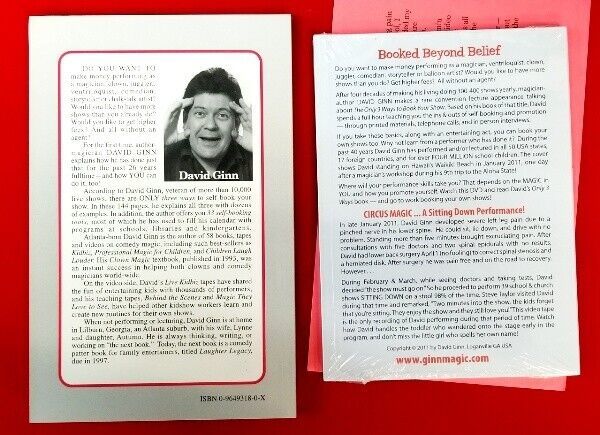 DO YOU WANT TO
make money performing as
a magician, clown, juggler,
ventriloquist, comedian,
storyteller or chalk-talk artist?
Would you like to have more
shows than you already do?
Would you like to get higher
fees? And all without an
agent?
For the first time, author-
magician DAVID GINN
explains how he has done just
that for the past 26 years
fulltime—and how YOU can
do it, too.
David Ginn
According to David Ginn, veteran of more than 10,000
live shows, there are ONLY three ways to self book your
show. In these 144 pages, he explains all three with dozens
of examples. In addition, the author offers you 33 self-booking
tools, most of which he has used to fill his calendar with
programs at schools, libraries and kindergartens.
Atlanta-born David Ginn is the author of 58 books, tapes
and videos on comedy magic, including such best-sellers as
Kidbiz, Professional Magic for Children, and Children Laugh
Louder. His Clown Magic textbook, published in 1993, was
an instant success in helping both clowns and comedy
magicians world-wide.
On the video side, David's Live Kidbiz tapes have shared
the fun of entertaining kids with thousands of performers,
and his teaching tapes, Behind the Scenes and Magic They
Love to See, have helped other kidshow workers learn and
create new routines for their own shows.
When not performing or lecturing, David Ginn is at home
in Lilburn, Georgia, an Atlanta suburb, with his wife, Lynne
and daughter, Autumn. He is always thinking, writing, or
working on "the next book." Today, the next book is a comedy
patter book for family entertainers, titled Laughter Legacy,
due in 1997.
ISBN 0-9649318-0-X
Booked Beyond Belief
Do you want to make money performing as a magician, ventriloquist, clown,
juggler, comedian, storyteller or balloon artist? Would you like to have more
shows than you do? Get higher fees? And all without an agent?
After four decades of making his living doing 300-400 shows yearly, magician-
author DAVID GINN makes a rare convention lecture appearance, talking
about the Only 3 Ways to Book Your Show. Based on his book of that title, David
spends a full hour teaching you the ins & outs of self booking and promotion
— through printed materials, telephone calls, and in person interviews.
If you take these basics, along with an entertaining act, you can book your
own shows too. Why not learn from a performer who has done it? During the
past 40 years David Ginn has performed and/or lectured in all 50 USA states,
17 foreign countries, and for over FOUR MILLION school children. The cover
shows David standing on Hawaii's Waikiki Beach in January 2011, one day
after a magician's workshop during his 9th trip to the Aloha State!
Where will your performance skills take you? That depends on the MAGIC in
YOU and how you promote yourself. Watch this DVD and read David's Only 3
Ways book — and go to work booking your own shows!
CIRCUS MAGIC ... A Sitting Down Performance!
In late January 2011, David Ginn developed severe left leg pain due to a
pinched nerve in his lower spine. He could sit, lie down, and drive with no
problem. Standing more than five minutes brought excruciating pain. After
consultations with five doctors and two spinal epidurals with no results,
David had lower back surgery April 1 (no fooling) to correct spinal stenosis and
a herniated disk. After surgery he was pain free and on the road to recovery.
However...
During February & March, while seeing doctors and taking tests, David
decided "the show must go on" so he proceeded to perform 39 school & church
shows SITTING DOWN on a stool 98% of the time. Steve Taylor visited David
during that time and remarked, "Two minutes into the show, the kids forget
that you're sitting. They enjoy the show and they still love you." This video tape
is the only recording of David performing during that period of time. Watch
how David handles the toddler who wandered onto the stage early in the
program, and don't miss the little girl who spells her own name!
Copyright © 2011 by David Ginn, Loganville GA USA
www.ginnmagic.com